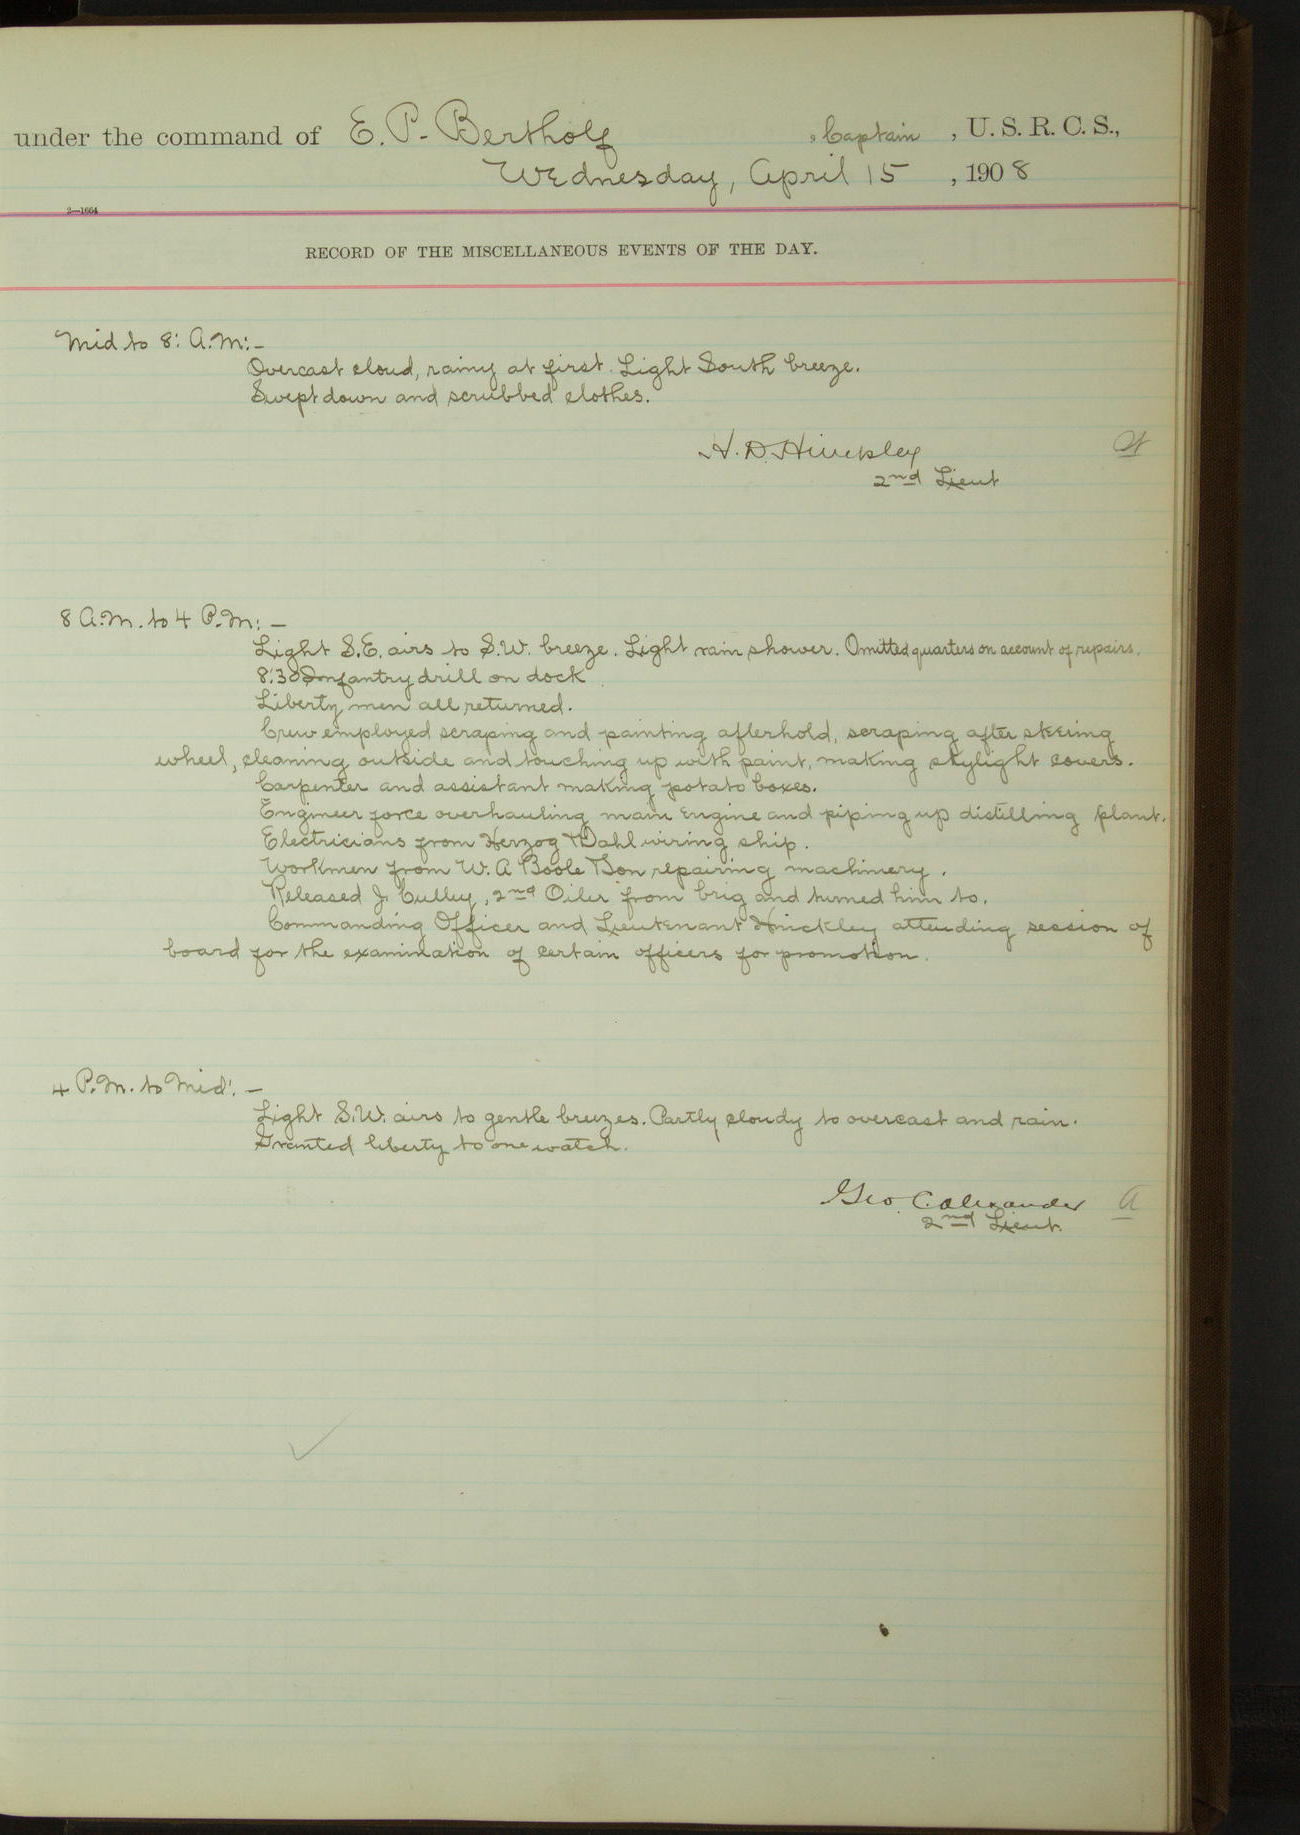 under the command of E. P. Bertholf, Captain, U. S. R. C. S.,
Wednesday, April 15, 1908
2—1664
RECORD OF THE MISCELLANEOUS EVENTS OF THE DAY.
Mid to 8: A.M:-
Overcast cloud, rainy at first. Light South breeze.
Swept down and scrubbed clothes.
H. D. Hinckley
2nd Lieut
8 A.M. to 4 P.M: -
Light S.E. airs to S.W. breeze. Light rain shower. Omitted quarters on account of repairs.
8:30 Infantry drill on dock.
Liberty men all returned.
Crew employed scraping and painting afterhold, scraping after steering
wheel, cleaning outside and touching up with paint, making skylight covers.
Carpenter and assistant making potato boxes.
Engineer force overhauling main engine and piping up distilling plant.
Electricians from Herzog & Dahl wiring ship.
Workmen from W. A Boole & Son repairing machinery.
Released J. Culley, 2nd Oiler from brig and turned him to.
Commanding Officer and Lieutenant Hinckley attending session of
board for the examination of certain officers for promotion.
4 P.M. to Mid: -
Light S.W. airs to gentle breezes. Partly cloudy to overcast and rain.
Granted liberty to one watch.
Geo. C. Alexander A
2nd Lieut.